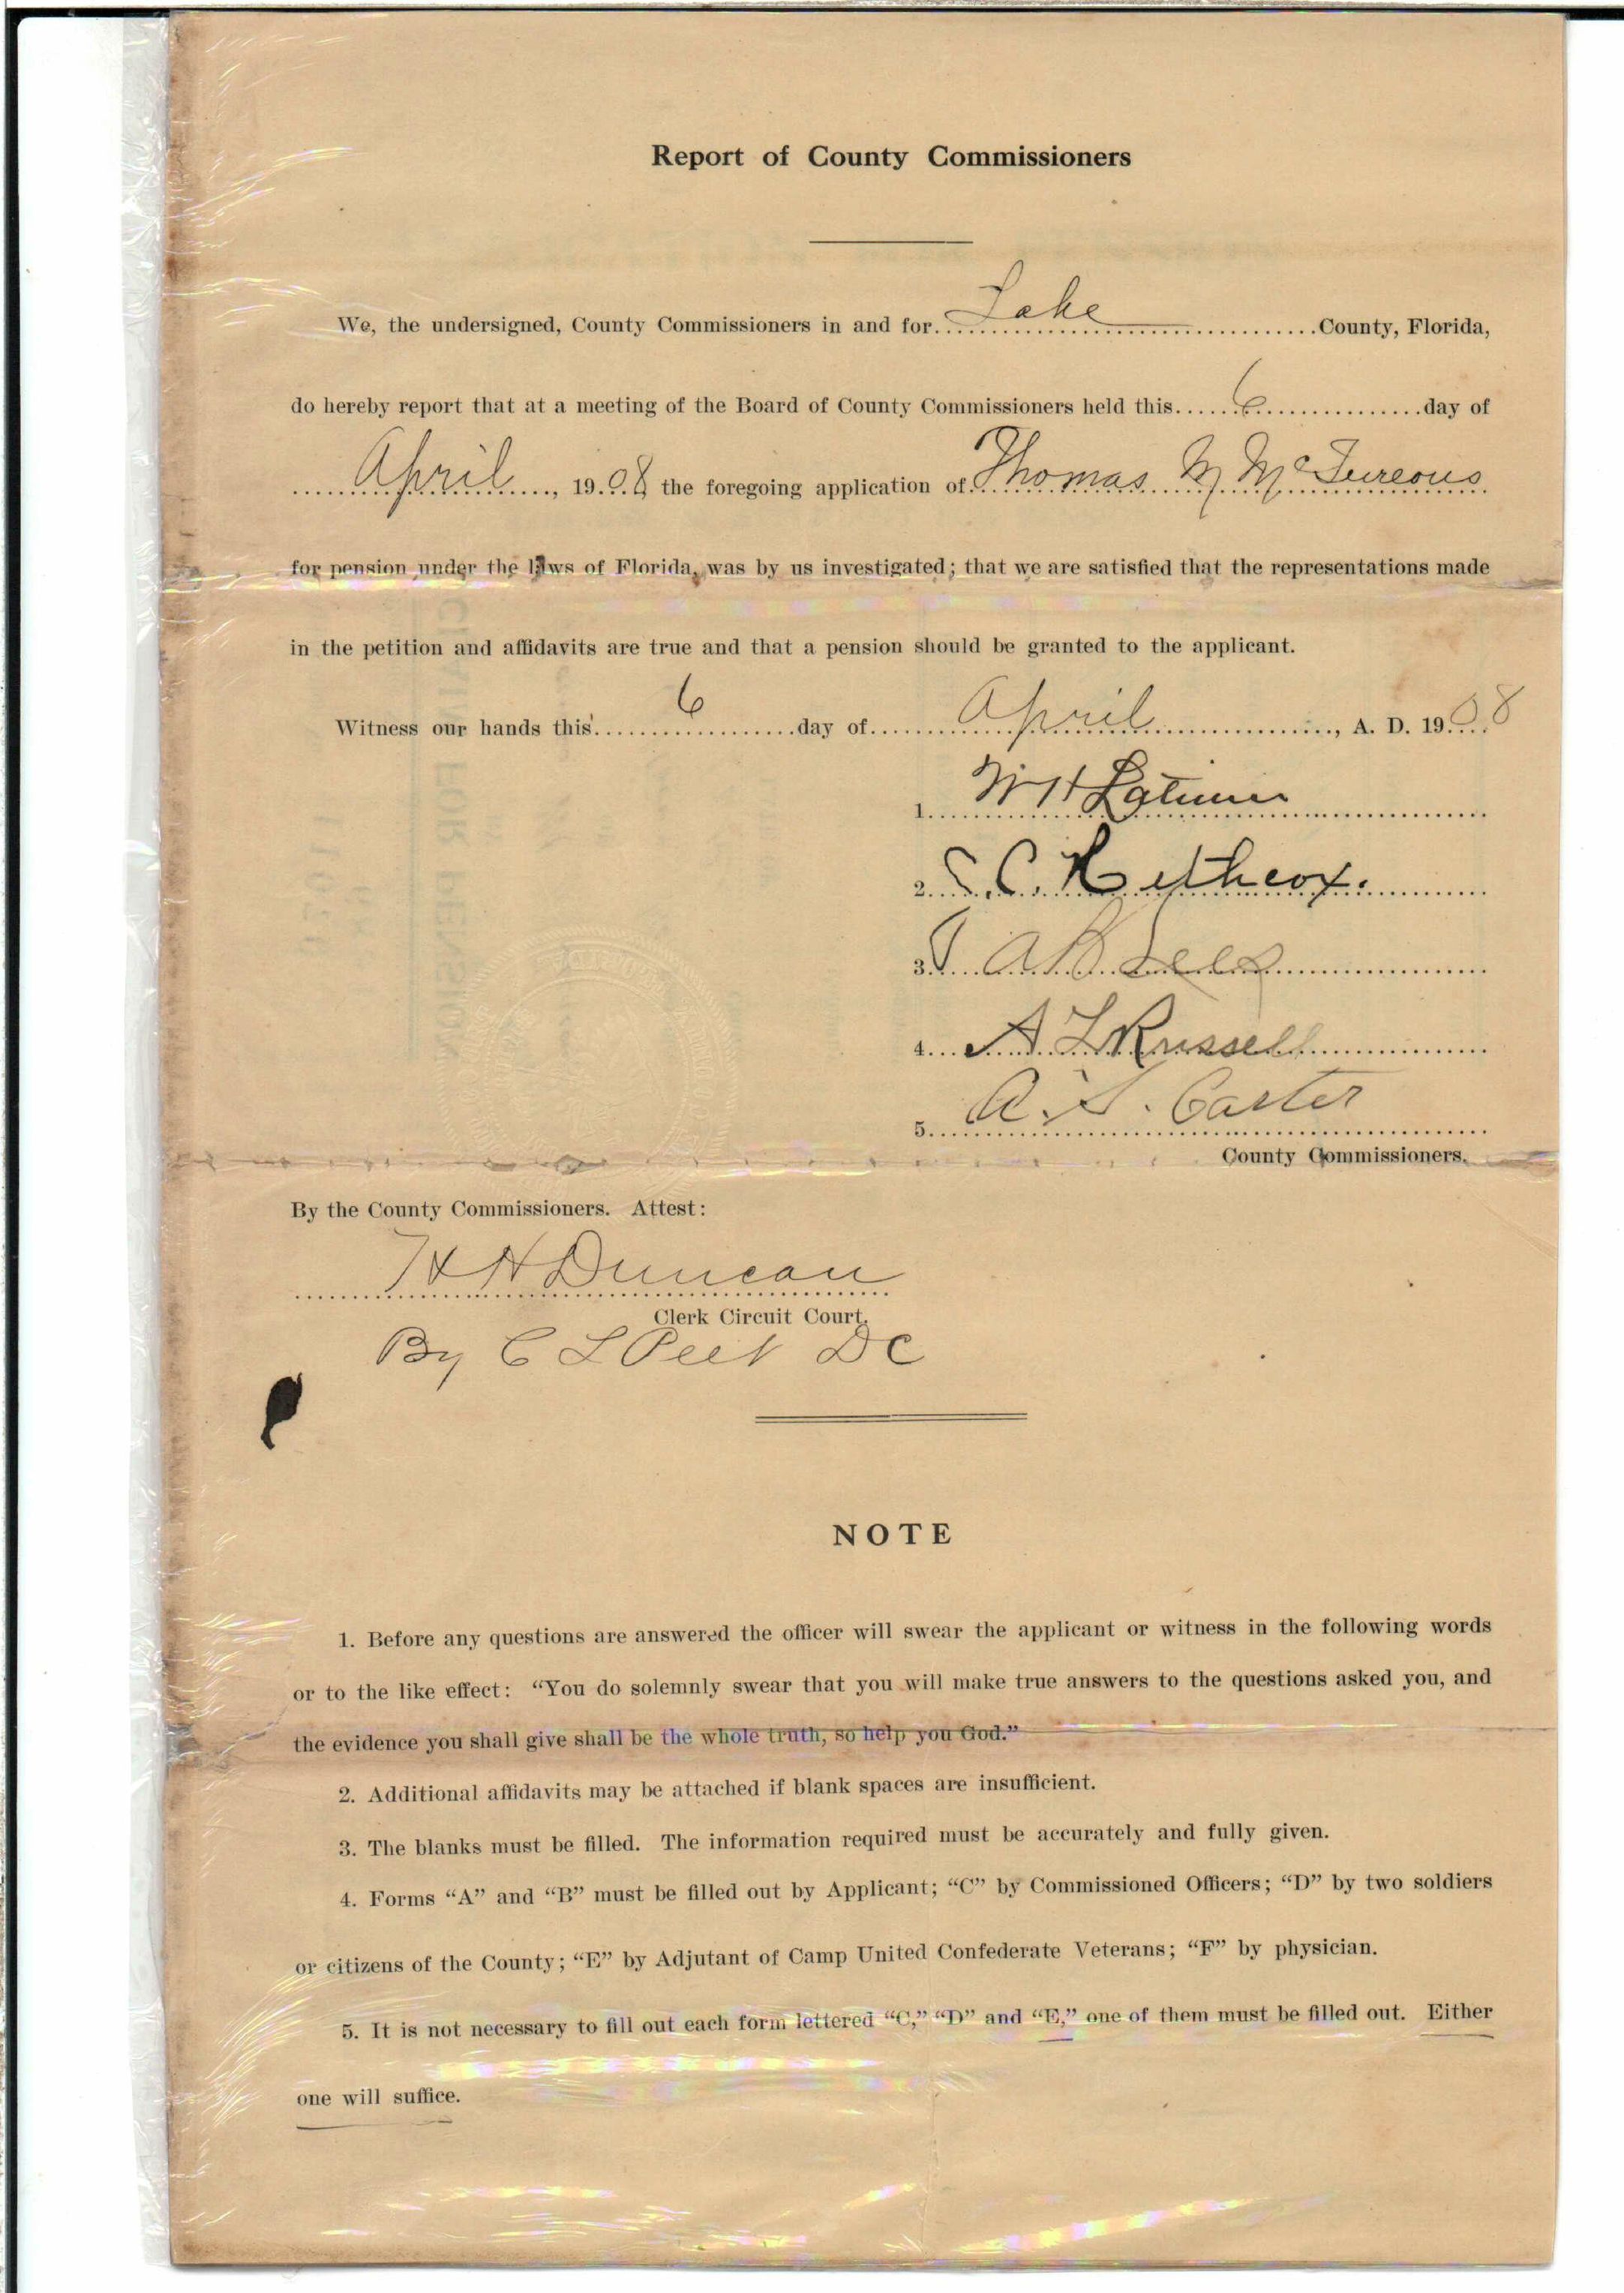 Report of County Commissioners
We, the undersigned, County Commissioners in and for Lake County, Florida,
do hereby report that at a meeting of the Board of County Commissioners held this 6 day of
April, 1908 the foregoing application of Thomas M
for pension under the laws of Florida, was by us investigated; that we are satisfied that the representations made
in the petition and affidavits are true and that a pension should be granted to the applicant.
Witness our hands this 6 day of April, A. D. 1908
1. W H Latimer
2. C.
3.
4. A L Russell
5. A. S. Carter
County Commissioners.
By the County Commissioners. Attest:
H H Duncan
Clerk Circuit Court.
By C L Peek DC
NOTE
1. Before any questions are answered the officer will swear the applicant or witness in the following words
or to the like effect: “You do solemnly swear that you will make true answers to the questions asked you, and
the evidence you shall give shall be the whole truth, so help you God.”
2. Additional affidavits may be attached if blank spaces are insufficient.
3. The blanks must be filled. The information required must be accurately and fully given.
4. Forms “A” and “B” must be filled out by Applicant; “C” by Commissioned Officers; “D” by two soldiers
or citizens of the County; “E” by Adjutant of Camp United Confederate Veterans; “F” by physician.
5. It is not necessary to fill out each form lettered “C,” “D” and “E,” one of them must be filled out. Either
one will suffice.